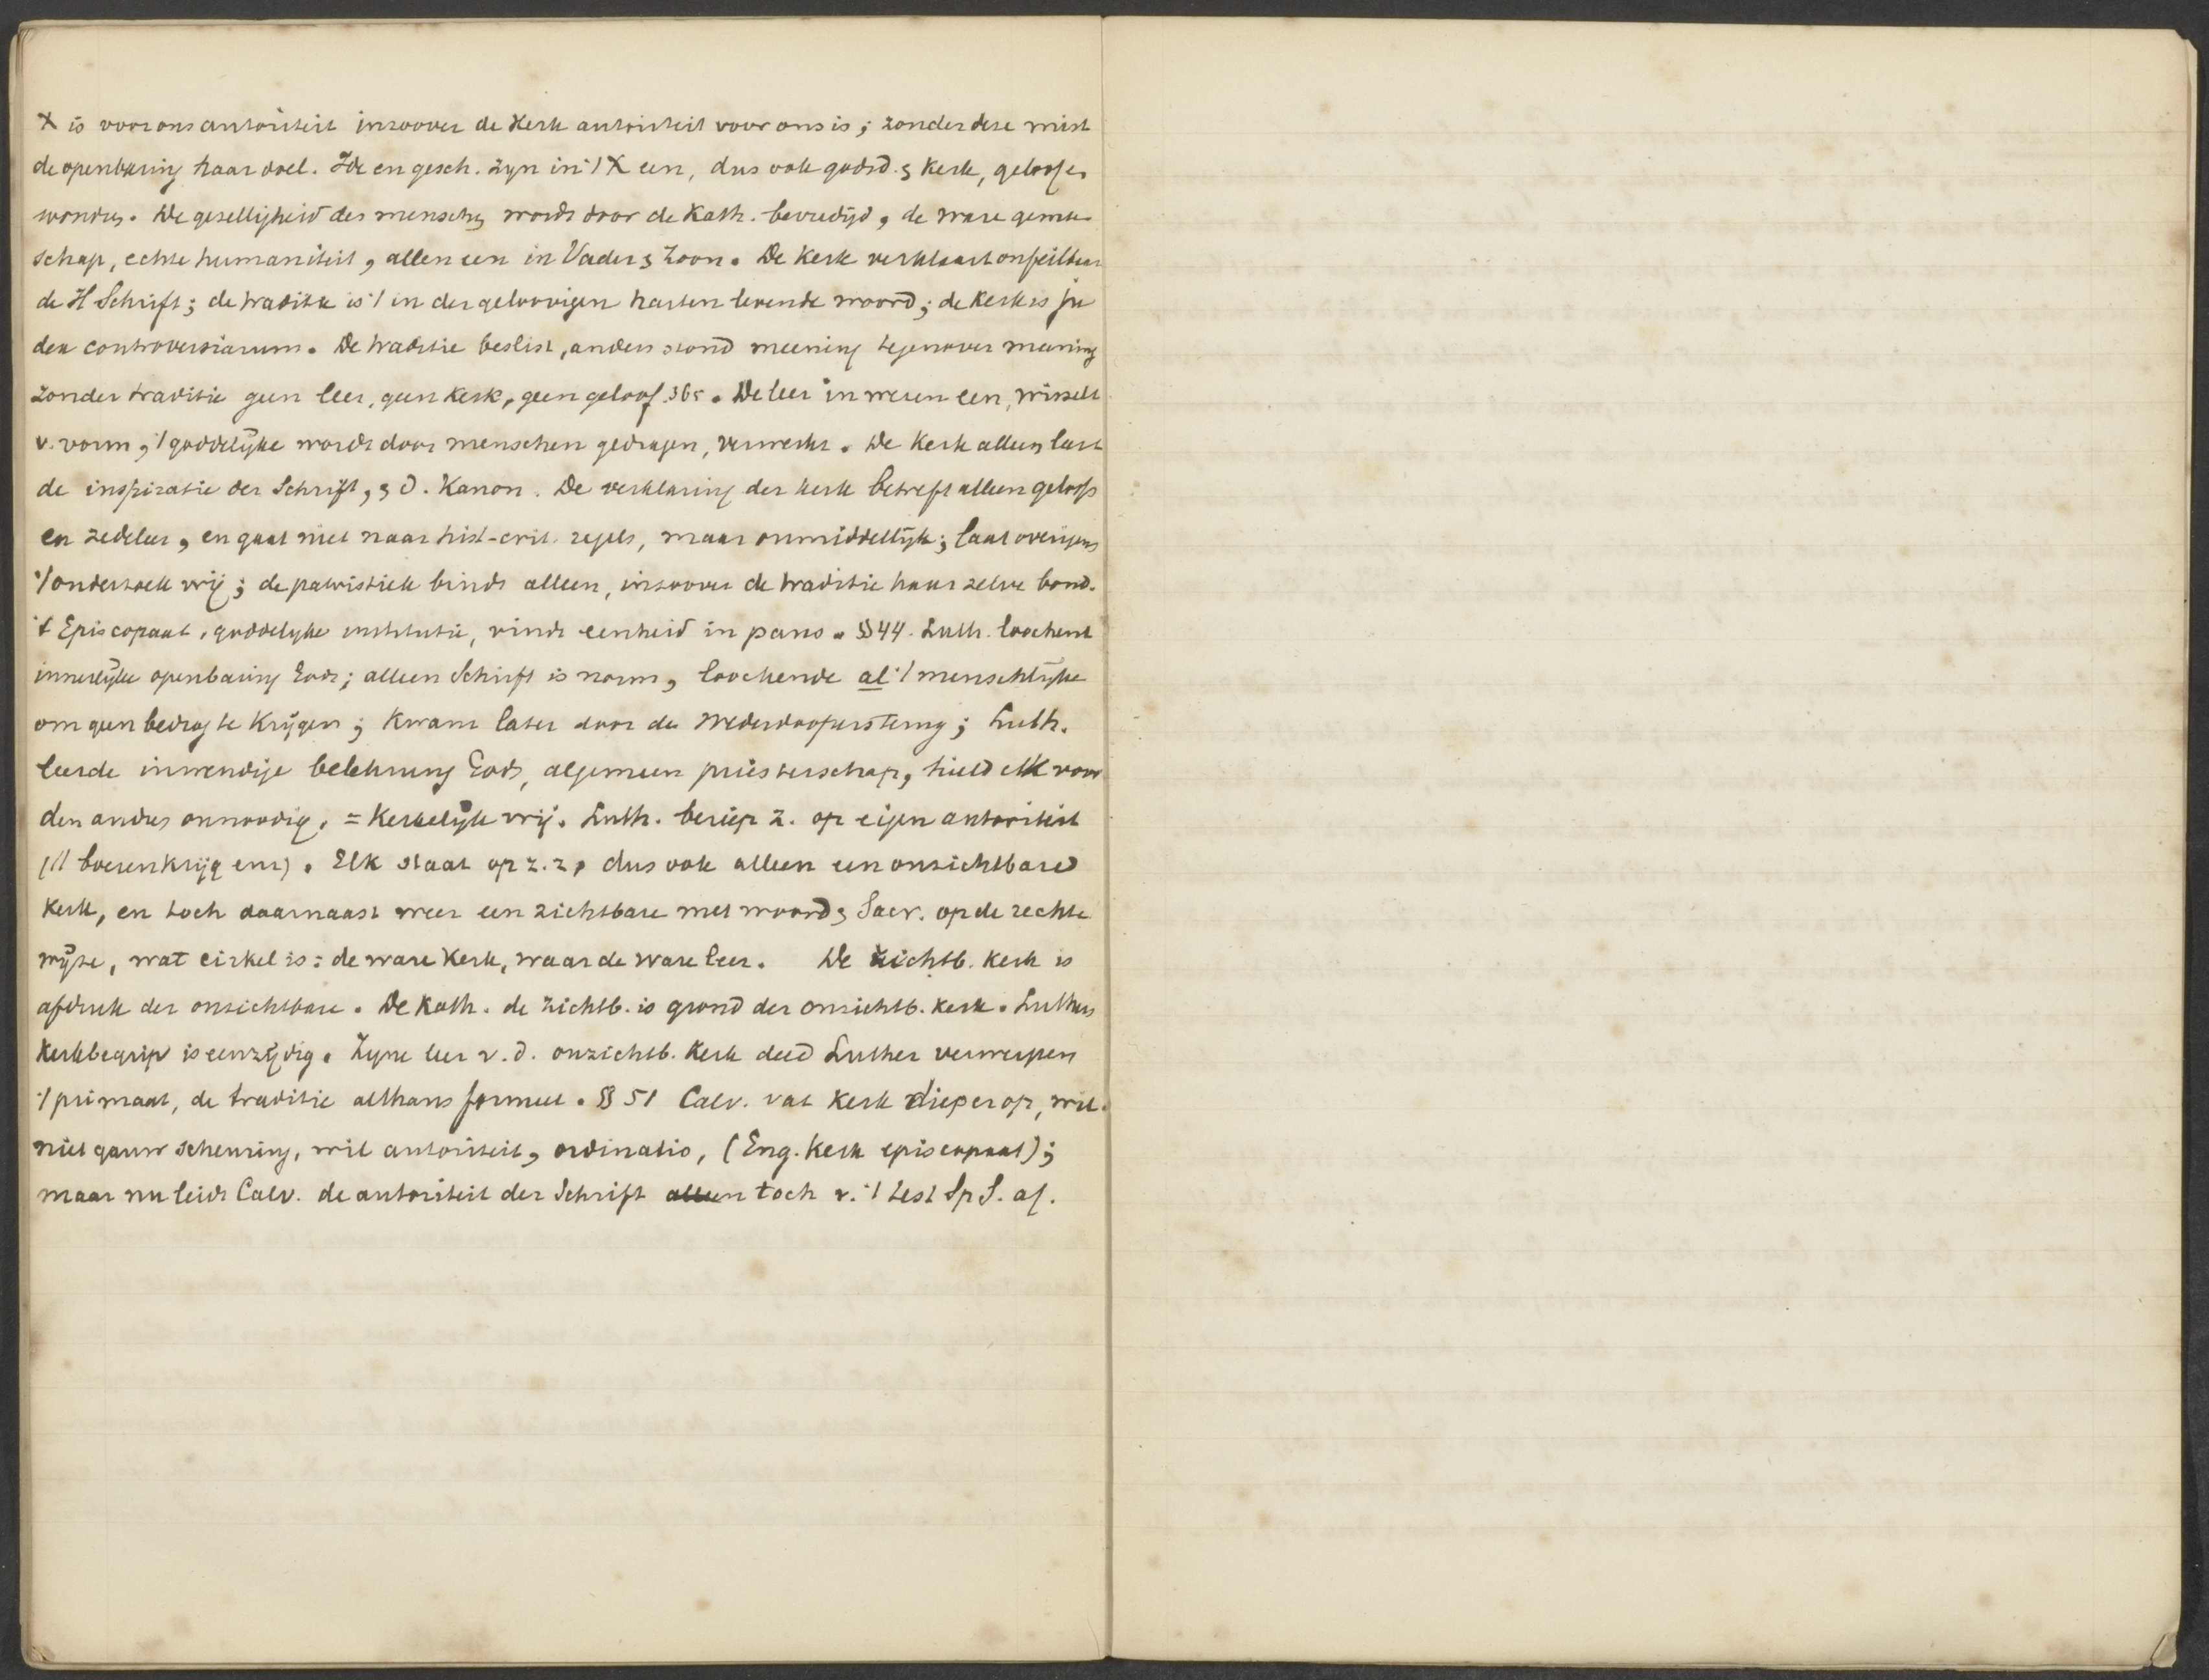 X is voor ons autoriteit inzoover de Kerk autoriteit voor ons is; zonder deze mist
de openbaring haar doel. Idee en gesch. zyn in 't X een, dus ook godsd. & kerk, geloof en
wonder. De gezelligheid des menschen wordt door de Kath. bevredigd, de ware gemeen
schap, echte humaniteit, allen een in Vader & Zoon. De Kerk verklaart onfeilbaar
de H Schrift; de traditie is 't in der geloovigen harten levende woord; de kerk is ju
dex controversiarum. De traditie beslist, anders stond meening tegenover meening
zonder traditie geen leer, geen kerk, geen geloof 365. De leer in wezen een, wisselt
v. vorm, 't goddelyke wordt door menschen gedragen, verwerkt. De Kerk alleen leert
de inspiratie der Schrift, & d. Kanon. De verklaring der kerk betreft alleen geloofs
en zedeleer, en gaat niet naar hist-crit. regels, maar onmiddellijk; laat overigens
't onderzoek vrij; de patristiek bindt alleen, inzoover de traditie haar zelve bond.
't Episcopaat, goddelyke institutie, vindt eenheid in paus. § 44. Luth. loochent
innerlijke openbaring Gods; alleen Schrift is norm, loochende al 't menschlijke
om geen bedrog te krijgen; kwam later door de Wederdooperstemg; Luth.
leerde inwendige belehrung Gods, algemeen priesterschap, hield elk voor
den ander onnoodig, = Kerkelijk vrij. Luth. beriep z. op eigen autoriteit
(// boerenkrijg enz). Elk staat op z.z, dus ook alleen een onzichtbare
kerk, en toch daarnaast weer een zichtbare met woord & Sacr. op de rechte
wijze, wat cirkel is: de ware Kerk, waar de ware leer. De zichtb. kerk is
afdruk der onzichtbare. De Kath. de zichtb. is grond der onzichtb. kerk. Luthers
kerkbegrip is eenzijdig. Zyne leer v. d. onzichtb. Kerk deed Luther verwerpen
't primaat, de traditie althans formeel. § 51 Calv. vat kerk dieper op, wil
niet gauw scheuring, wil autoriteit, ordinatio, (Eng. Kerk episcopaat);
maar nu leidt Calv. de autoriteit der Schrift alleen toch v. 't test Sp S. af.